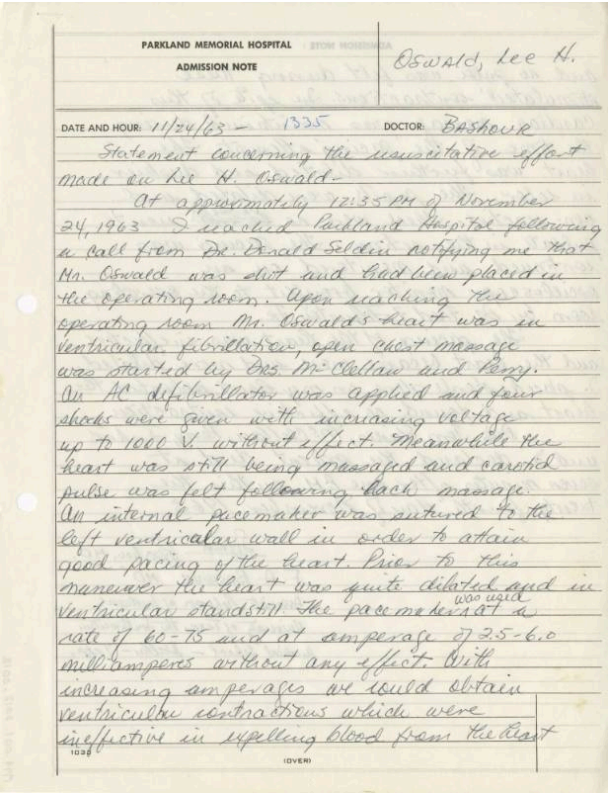 PARKLAND MEMORIAL HOSPITAL
ADMISSION NOTE
Oswald, Lee H.
DATE AND HOUR: 11/24/63 - 1335 DOCTOR: BASHOUR
Statement concerning the resuscitative effort
made on Lee H. Oswald-
At approximately 12:35 PM of November
24, 1963 I reached Parkland Hospital following
a call from Dr. Donald Seldin notifying me that
Mr. Oswald was shot and had been placed in
the operating room. Upon reaching the
operating room Mr. Oswald's heart was in
ventricular fibrillation, open chest massage
was started by Drs. McClellan and Perry.
An AC defibrillator was applied and four
shocks were given with increasing voltage
up to 1000 V. without effect. Meanwhile the
heart was still being massaged and carotid
pulse was felt following each massage.
An internal pacemaker was sutured to the
left ventricular wall in order to attain
good pacing of the heart. Prior to this
maneuver the heart was quite dilated and in
ventricular standstill. The pacemaker was used at a
rate of 60-75 and at amperage of 2.5-6.0
milliamperes without any effect. With
increasing amperages we could obtain
ventricular contractions which were
ineffective in expelling blood from the heart
1038
(OVER)